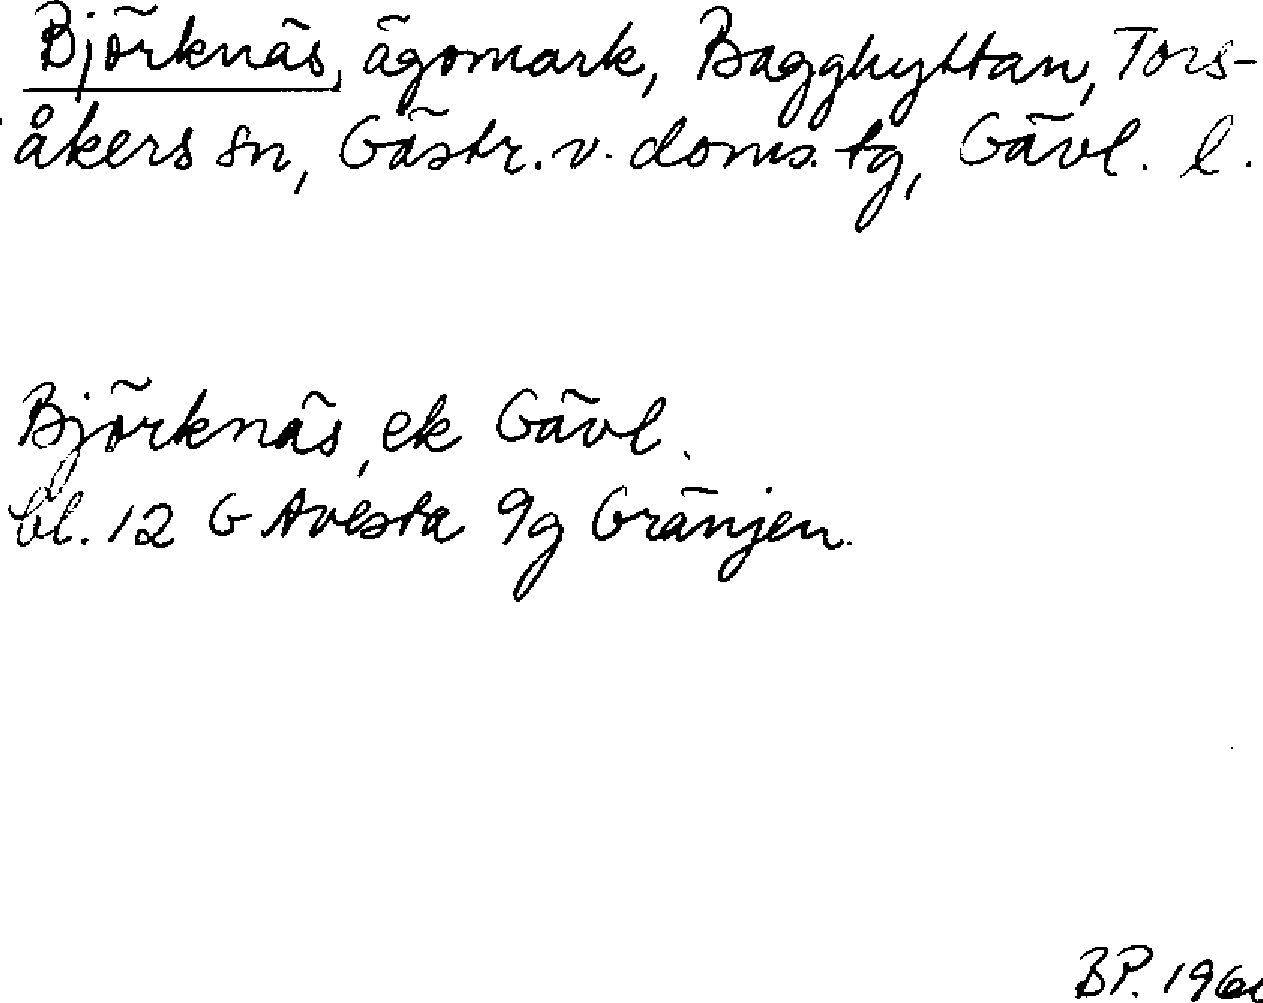 Björknäs, ägomark, Bagghyttan, Tors-
åkers sn, Gästr. v. doms. tg, Gävl. l.
Björknäs, ek Gävl.
bl. 12 G Avesta 9g Gränjen.
BP.